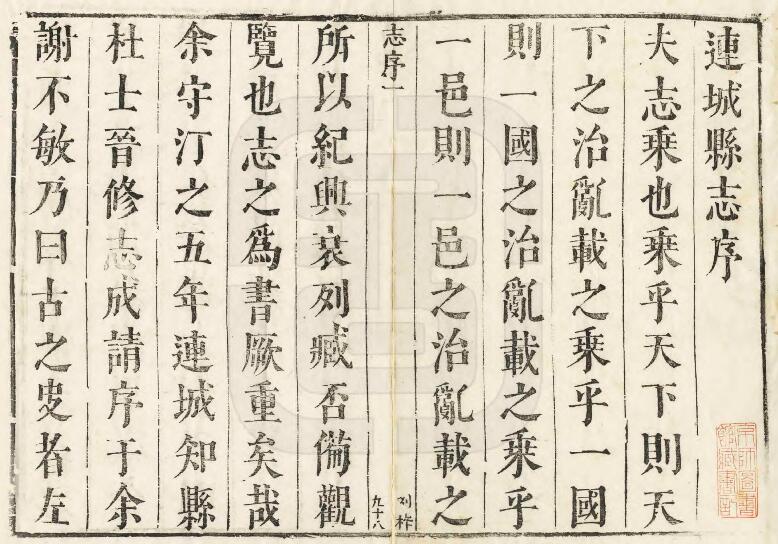 連城縣志序
夫志乘也乘乎天下則天
下之治亂載之乘乎一國
則一國之治亂載之乘乎
一邑則一邑之治亂載之
志序一
九十八
所以紀興衰列臧否備觀
覽也志之爲書厥重矣哉
余守汀之五年連城知縣
杜士晉修志成請序于余
謝不敏乃曰古之史者左